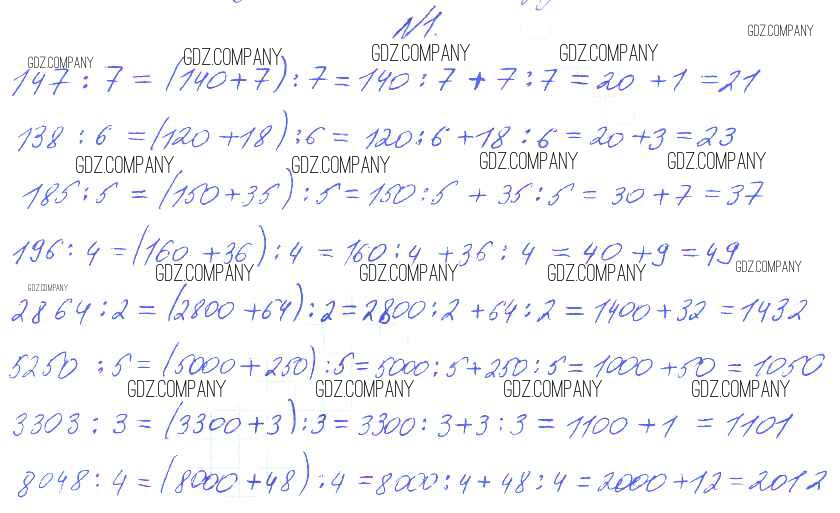 №1.
147 : 7 = (140+7) : 7 = 140 : 7 + 7 : 7 = 20 + 1 = 21
138 : 6 = (120 + 18) : 6 = 120 : 6 + 18 : 6 = 20 + 3 = 23
185 : 5 = (150 + 35) : 5 = 150 : 5 + 35 : 5 = 30 + 7 = 37
196 : 4 = (160 + 36) : 4 = 160 : 4 + 36 : 4 = 40 + 9 = 49
2864 : 2 = (2800 + 64) : 2 = 2800 : 2 + 64 : 2 = 1400 + 32 = 1432
5250 : 5 = (5000 + 250) : 5 = 5000 : 5 + 250 : 5 = 1000 + 50 = 1050
3303 : 3 = (3300 + 3) : 3 = 3300 : 3 + 3 : 3 = 1100 + 1 = 1101
8048 : 4 = (8000 + 48) : 4 = 8000 : 4 + 48 : 4 = 2000 + 12 = 2012
GDZ.COMPANY
GDZ.COMPANY GDZ.COMPANY GDZ.COMPANY GDZ.COMPANY
GDZ.COMPANY GDZ.COMPANY GDZ.COMPANY GDZ.COMPANY
GDZ.COMPANY GDZ.COMPANY GDZ.COMPANY GDZ.COMPANY
GDZ.COMPANY
GDZ.COMPANY GDZ.COMPANY GDZ.COMPANY GDZ.COMPANY